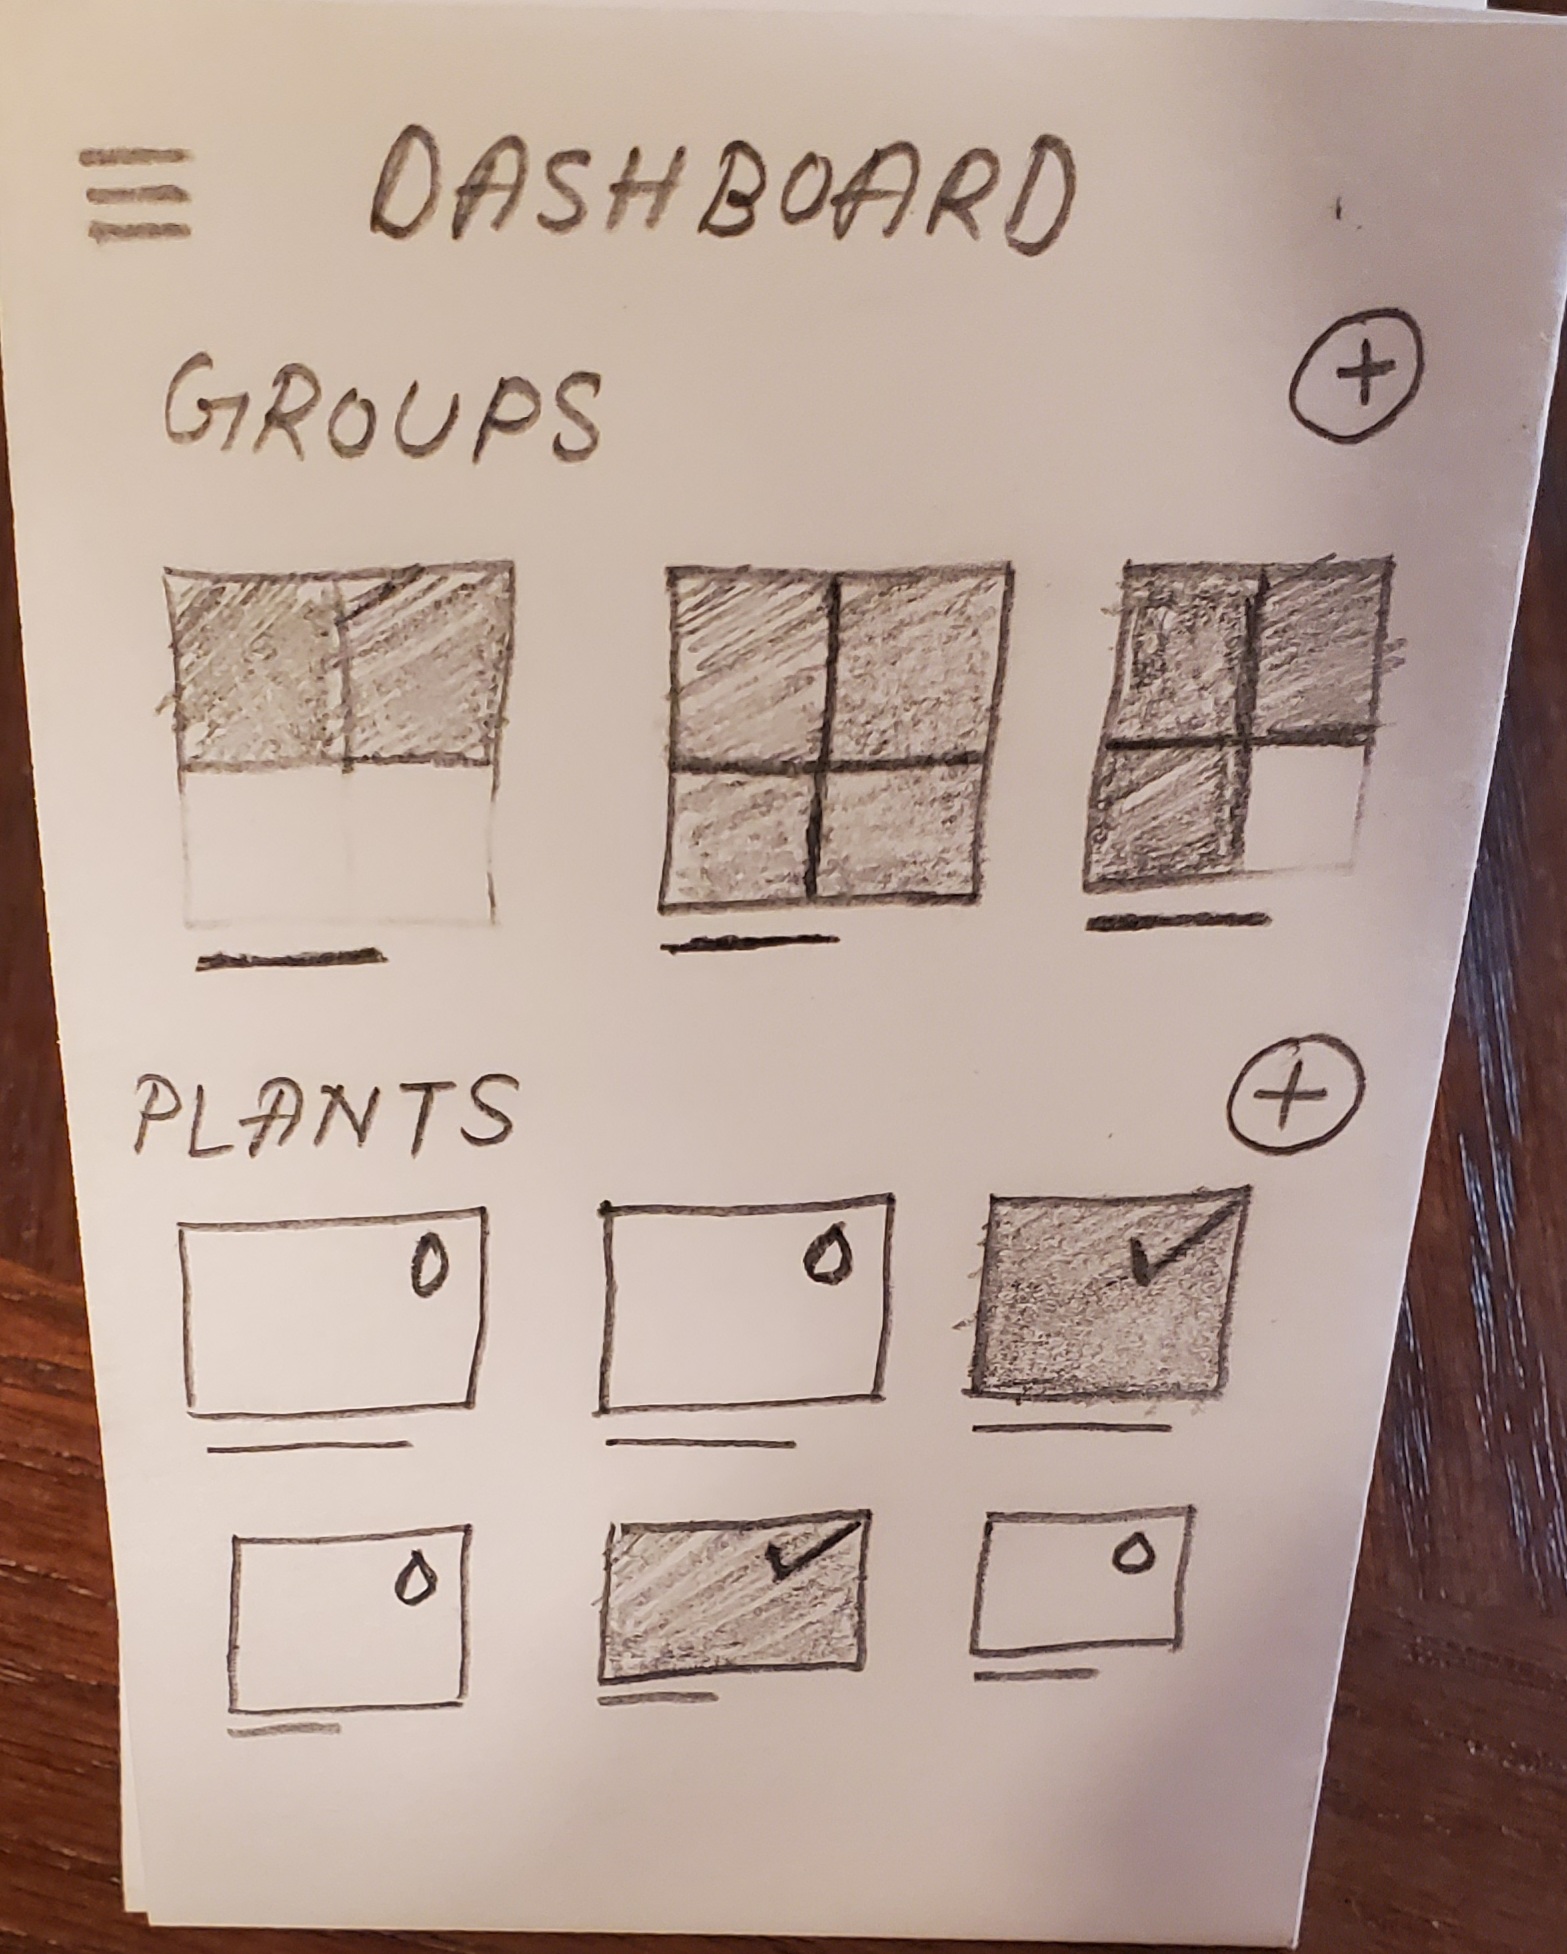 DASHBOARD
GROUPS
+
PLANTS
+